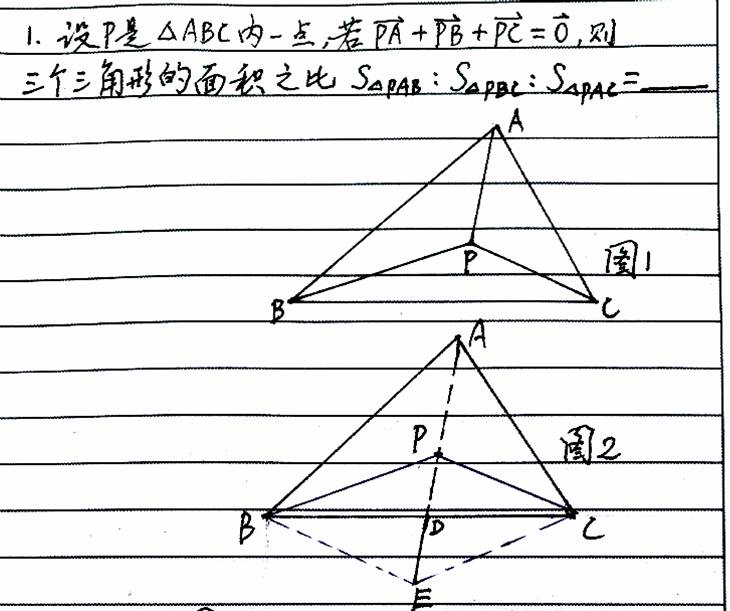 1. 设P是△ABC内一点,若PA⃗+PB⃗+PC⃗=0⃗,则
三个三角形的面积之比 S△PAB:S△PBC:S△PAC=____
A
P
图1
B
C
A
P
图2
B
D
C
E